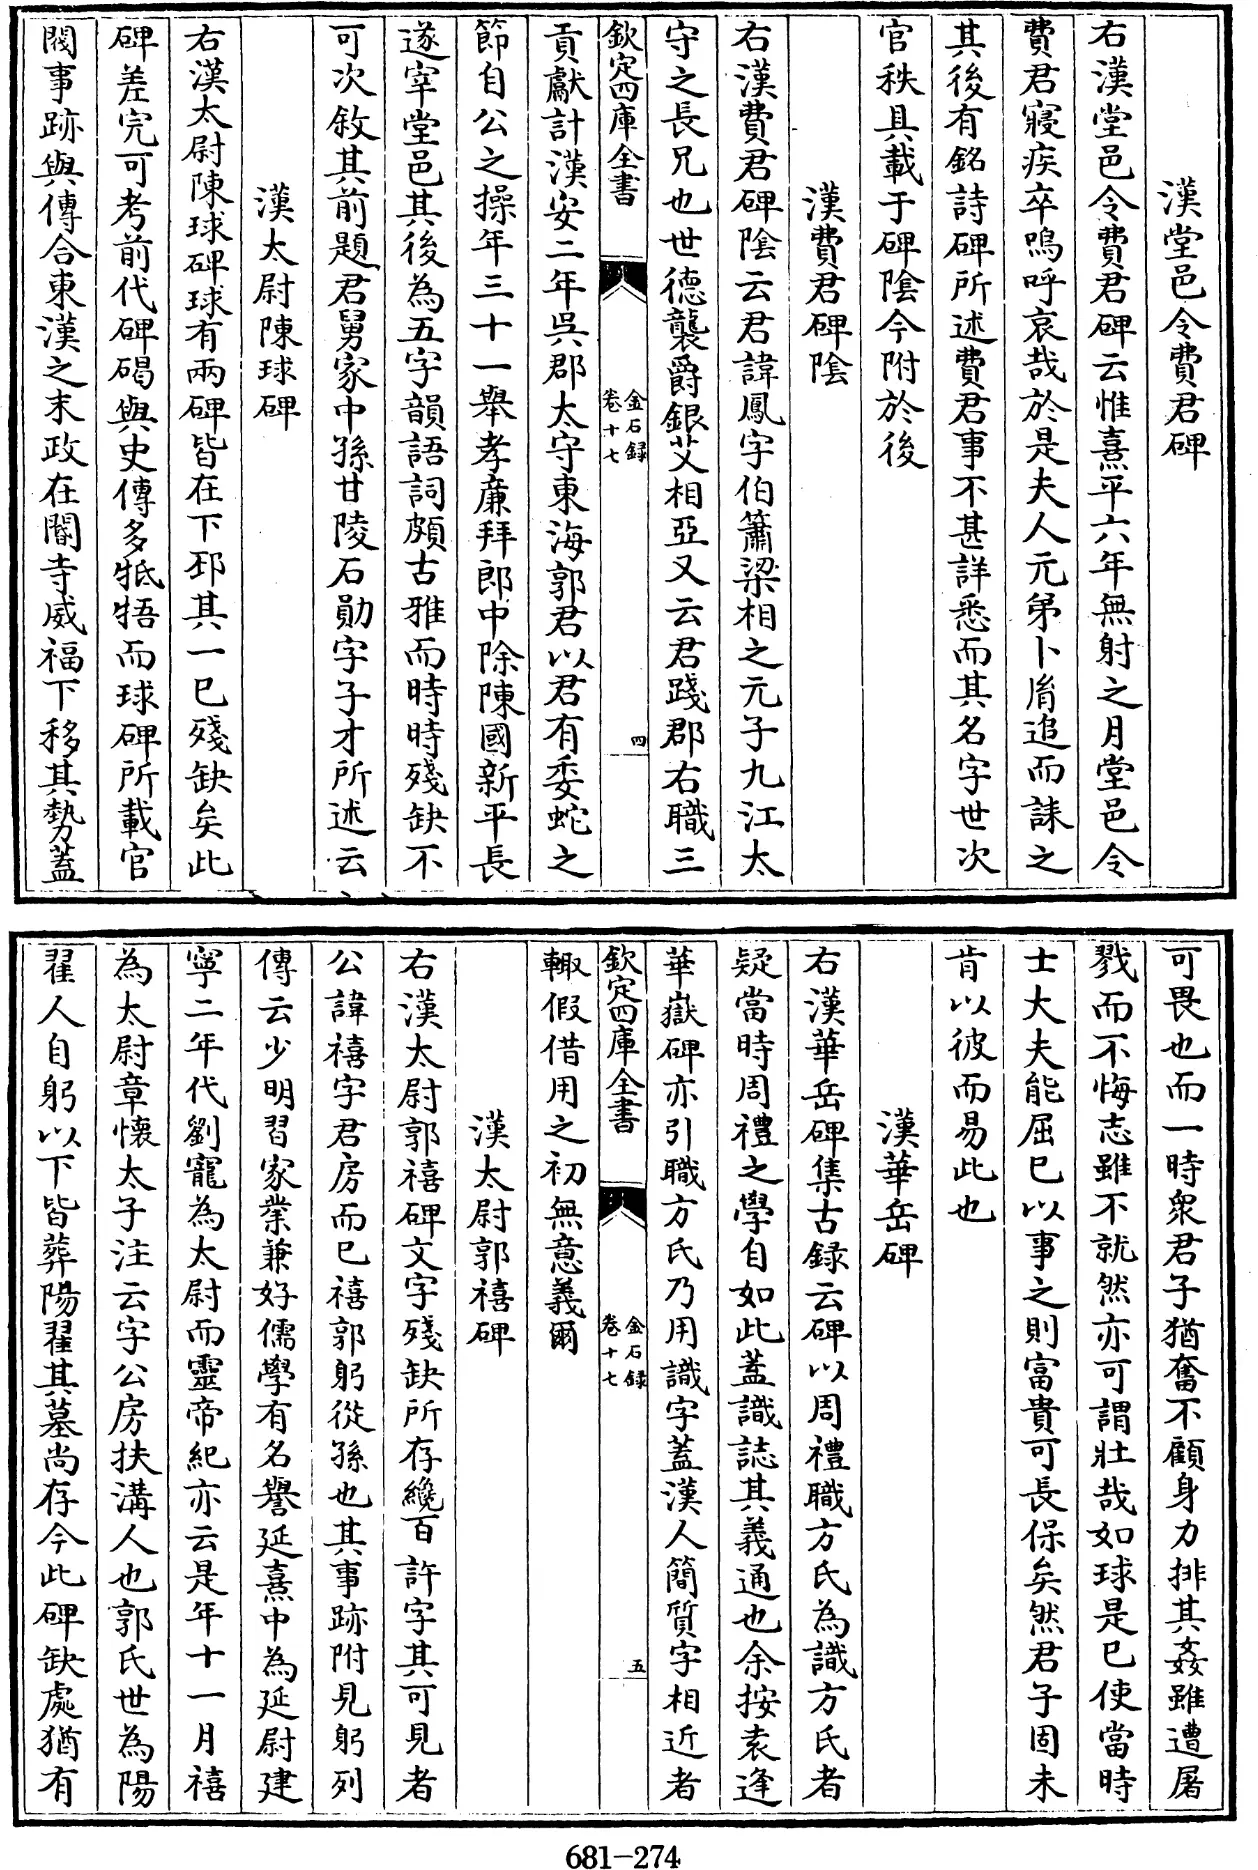 漢堂邑令費君碑
右漢堂邑令費君碑云惟熹平六年無射之月堂邑令
費君寢疾卒嗚呼哀哉於是夫人元弟卜胤追而誄之
其後有銘詩碑所述費君事不甚詳悉而其名字世次
官秩具載于碑隂今附於後
漢費君碑隂
右漢費君碑隂云君諱鳳字伯簫梁相之元子九江太
守之長兄也世德襲爵銀艾相亞又云君踐郡右職三
欽定四庫全書
金石録
卷十七
四
貢獻計漢安二年吳郡太守東海郭君以君有委蛇之
節自公之操年三十一舉孝廉拜郎中除陳國新平長
遂宰堂邑其後為五字韻語詞頗古雅而時時殘缺不
可次敘其前題君舅家中孫甘陵石勛字子才所述云
漢太尉陳球碑
右漢太尉陳球碑球有兩碑皆在下邳其一已殘缺矣此
碑差完可考前代碑碣與史傳多牴牾而球碑所載官
閥事跡與傳合東漢之末政在閹寺威福下移其勢蓋
可畏也而一時衆君子猶奮不顧身力排其姦雖遭屠
戮而不悔志雖不就然亦可謂壯哉如球是已使當時
士大夫能屈已以事之則富貴可長保矣然君子固未
肯以彼而易此也
漢華岳碑
右漢華岳碑集古録云碑以周禮職方氏為識方氏者
疑當時周禮之學自如此蓋識誌其義通也余按袁逢
華嶽碑亦引職方氏乃用識字蓋漢人簡質字相近者
欽定四庫全書
金石録
卷十七
五
輙假借用之初無意義爾
漢太尉郭禧碑
右漢太尉郭禧碑文字殘缺所存纔百許字其可見者
公諱禧字君房而已禧郭躬從孫也其事跡附見躬列
傳云少明習家業兼好儒學有名譽延熹中為延尉建
寧二年代劉寵為太尉而靈帝紀亦云是年十一月禧
為太尉章懷太子注云字公房扶溝人也郭氏世為陽
翟人自躬以下皆葬陽翟其墓尚存今此碑缺處猶有
681-274